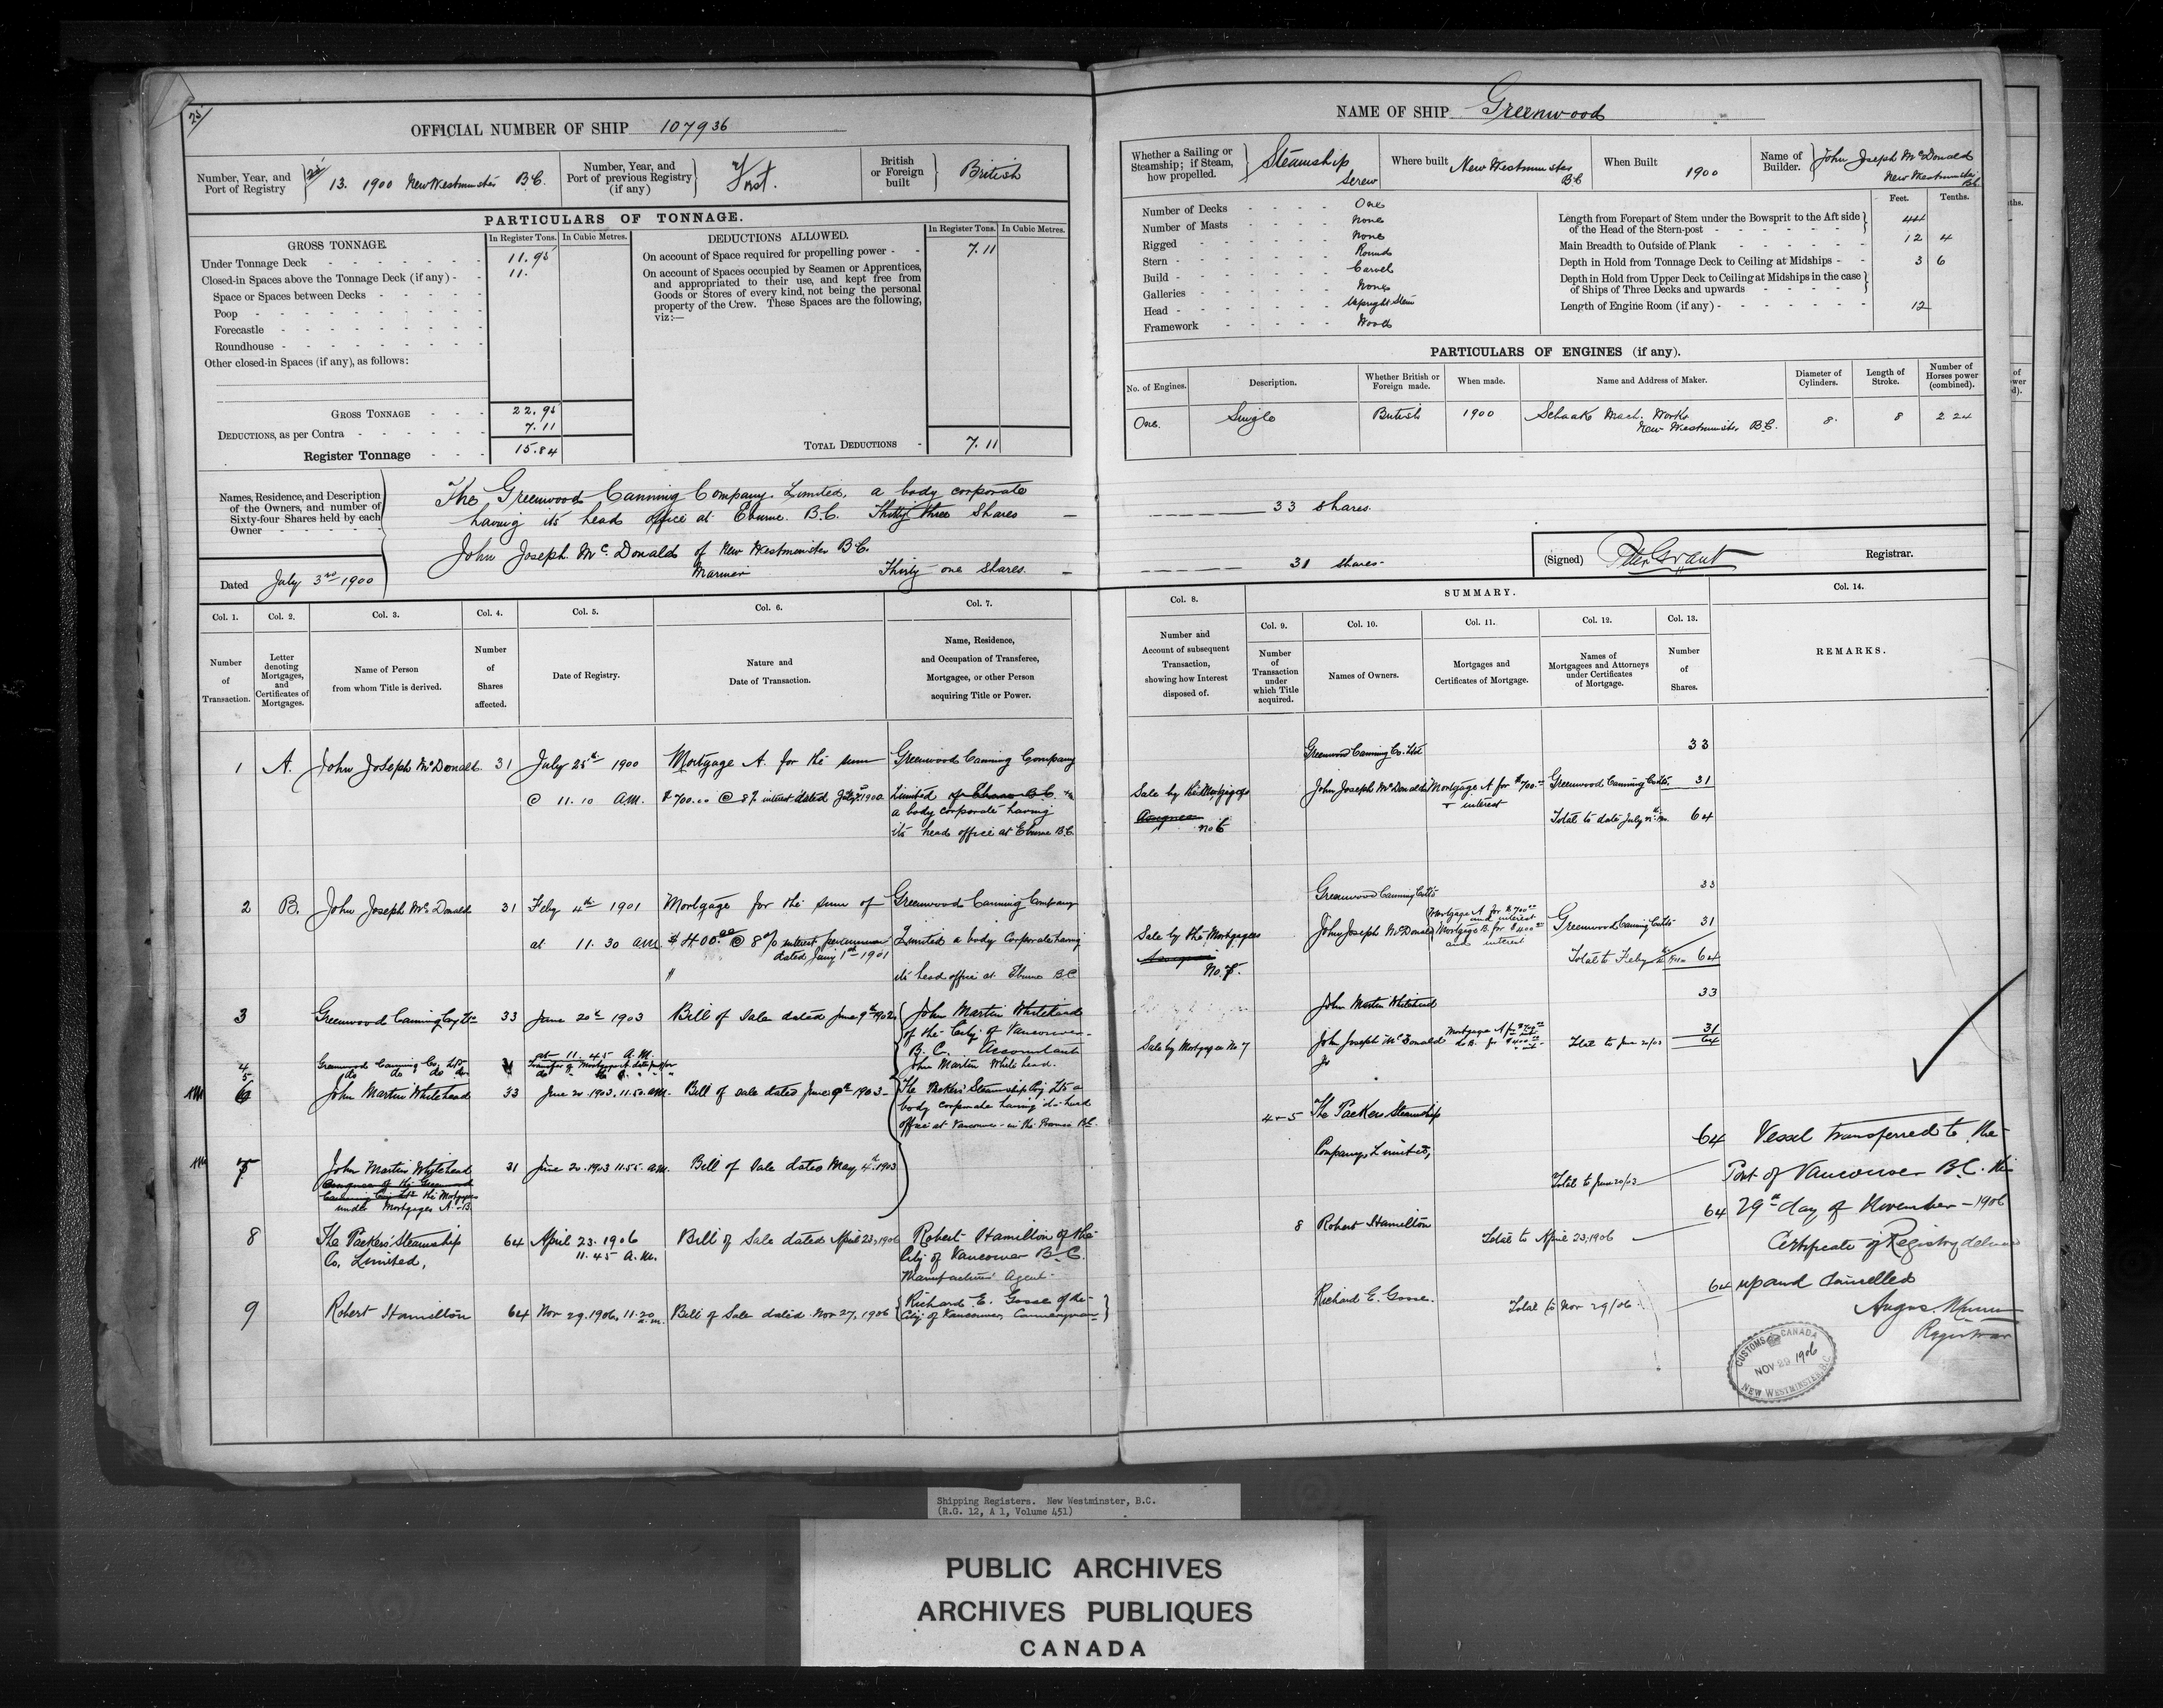 25
OFFICIAL NUMBER OF SHIP 107936
Number, Year, and Port of Registry 13. 1900 New Westminster B.C.
Number, Year, and Port of previous Registry (if any) First.
British or Foreign built British
PARTICULARS OF TONNAGE.
GROSS TONNAGE.
In Register Tons. In Cubic Metres.
Under Tonnage Deck 11.95
Closed-in Spaces above the Tonnage Deck (if any) 11.
Space or Spaces between Decks
Poop
Forecastle
Roundhouse
Other closed-in Spaces (if any), as follows:
GROSS TONNAGE 22.95
DEDUCTIONS, as per Contra 7.11
Register Tonnage 15.84
DEDUCTIONS ALLOWED.
In Register Tons. In Cubic Metres.
On account of Space required for propelling power 7.11
On account of Spaces occupied by Seamen or Apprentices,
and appropriated to their use, and kept free from
Goods or Stores of every kind, not being the personal
property of the Crew. These Spaces are the following,
viz:—
TOTAL DEDUCTIONS 7.11
Names, Residence, and Description of the Owners, and number of Sixty-four Shares held by each Owner
The Greenwood Canning Company Limited, a body corporate
having its head office at Eburne B.C. Thirty three Shares
John Joseph McDonald of New Westminster B.C.
Mariner Thirty one Shares.
Dated July 3rd 1900
NAME OF SHIP Greenwood
Whether a Sailing or Steamship; if Steam, how propelled. Steamship Screw
Where built New Westminster B.C.
When Built 1900
Name of Builder. John Joseph McDonald New Westminster B.C.
Number of Decks One
Number of Masts None
Rigged None
Stern Round
Build Carvel
Galleries None
Head Upright Stem
Framework Wood
Feet. Tenths.
Length from Forepart of Stem under the Bowsprit to the Aft side of the Head of the Stern-post 44
Main Breadth to Outside of Plank 12 4
Depth in Hold from Tonnage Deck to Ceiling at Midships 3 6
Depth in Hold from Upper Deck to Ceiling at Midships in the case of Ships of Three Decks and upwards
Length of Engine Room (if any) 12
PARTICULARS OF ENGINES (if any).
No. of Engines. Description. Whether British or Foreign made. When made. Name and Address of Maker. Diameter of Cylinders. Length of Stroke. Number of Horses power (combined).
One. Single British 1900 Schaake Mach. Works New Westminster B.C. 8. 8 2.24
33 shares.
31 shares.
(Signed) Peter Grant Registrar.
Col. 1. Col. 2. Col. 3. Col. 4. Col. 5. Col. 6. Col. 7.
Number of Transaction.
Letter denoting Mortgages, and Certificates of Mortgages.
Name of Person from whom Title is derived.
Number of Shares affected.
Date of Registry.
Nature and Date of Transaction.
Name, Residence, and Occupation of Transferee, Mortgagee, or other Person acquiring Title or Power.
Col. 8. SUMMARY. Col. 14.
Col. 9. Col. 10. Col. 11. Col. 12. Col. 13.
Number and Account of subsequent Transaction, showing how Interest disposed of.
Number of Transaction under which Title acquired.
Names of Owners.
Mortgages and Certificates of Mortgage.
Names of Mortgagees and Attorneys under Certificates of Mortgage.
Number of Shares.
REMARKS.
1 A. John Joseph McDonald 31 July 25th 1900 Mortgage A. for the sum Greenwood Canning Company
@ 11.10 AM. $700.00 @ 8% interest dated 1900 Limited of Eburne B.C.
a body corporate having
its head office at Eburne B.C.
2 B. John Joseph McDonald 31 Feby 4th 1901 Mortgage for the sum of Greenwood Canning Company
at 11.30 AM $400.00 @ 8% interest per annum Limited a body corporate having
dated Jany 1st 1901
its head office at Eburne B.C.
3 Greenwood Canning Coy Ltd 33 June 20th 1903 Bill of Sale dated June 9th 1902 John Martin Whitehead
at 11.45 A.M. of the City of Vancouver
B.C. Accountant
4 Greenwood Canning Co. Ltd Transfer of Mortgage A John Martin Whitehead.
5 do do do do
6 John Martin Whitehead 33 June 20 1903 11.50 AM. Bill of sale dated June 9th 1903 The Packers Steamship Coy Ltd a
body corporate having its head
office at Vancouver in the Province B.C.
7 John Martin Whitehead 31 June 20 1903 11.55 AM. Bill of Sale dated May 4th 1903
the Mortgagee
under Mortgages A & B.
8 The Packers' Steamship 64 April 23. 1906 Bill of Sale dated April 23, 1906 Robert Hamilton of the
Co. Limited, 11.45 A.M. City of Vancouver B.C.
Manufacturers Agent.
9 Robert Hamilton 64 Nov 29. 1906, 11.20 a.m. Bill of Sale dated Nov 27, 1906 Richard E. Gosse of the
City of Vancouver Canneryman
Greenwood Canning Co. Ltd 33
Sale by the Mortgagee John Joseph McDonald Mortgage A for $700.00 Greenwood Canning Co Ltd. 31
& interest
No 6 Total to date July 64
Greenwood Canning Co Ltd 33
Mortgage A for $700.00
and interest
Sale by the Mortgagee John Joseph McDonald Mortgage B. for $400.00 Greenwood Canning Co Ltd 31
and interest
No. 7. Total to Feby 64
John Martin Whitehead 33
Sale by Mortgagee No 7 John Joseph McDonald Mortgage A for $700.00 31
do B. for $400.00 Total to June 20/03 64
4 & 5 The Packers Steamship
Company Limited, 64
Total to June 20/03
8 Robert Hamilton 64
Total to April 23, 1906
Richard E. Gosse. 64
Total to Nov 29/06
Vessel transferred to the
Port of Vancouver B.C. this
29th day of November 1906
Certificate of Registry delivered
up and Cancelled
Registrar
CUSTOMS CANADA
NOV 29 1906
NEW WESTMINSTER, B.C.
Shipping Registers. New Westminster, B.C.
(R.G. 12, A 1, Volume 451)
PUBLIC ARCHIVES
ARCHIVES PUBLIQUES
CANADA